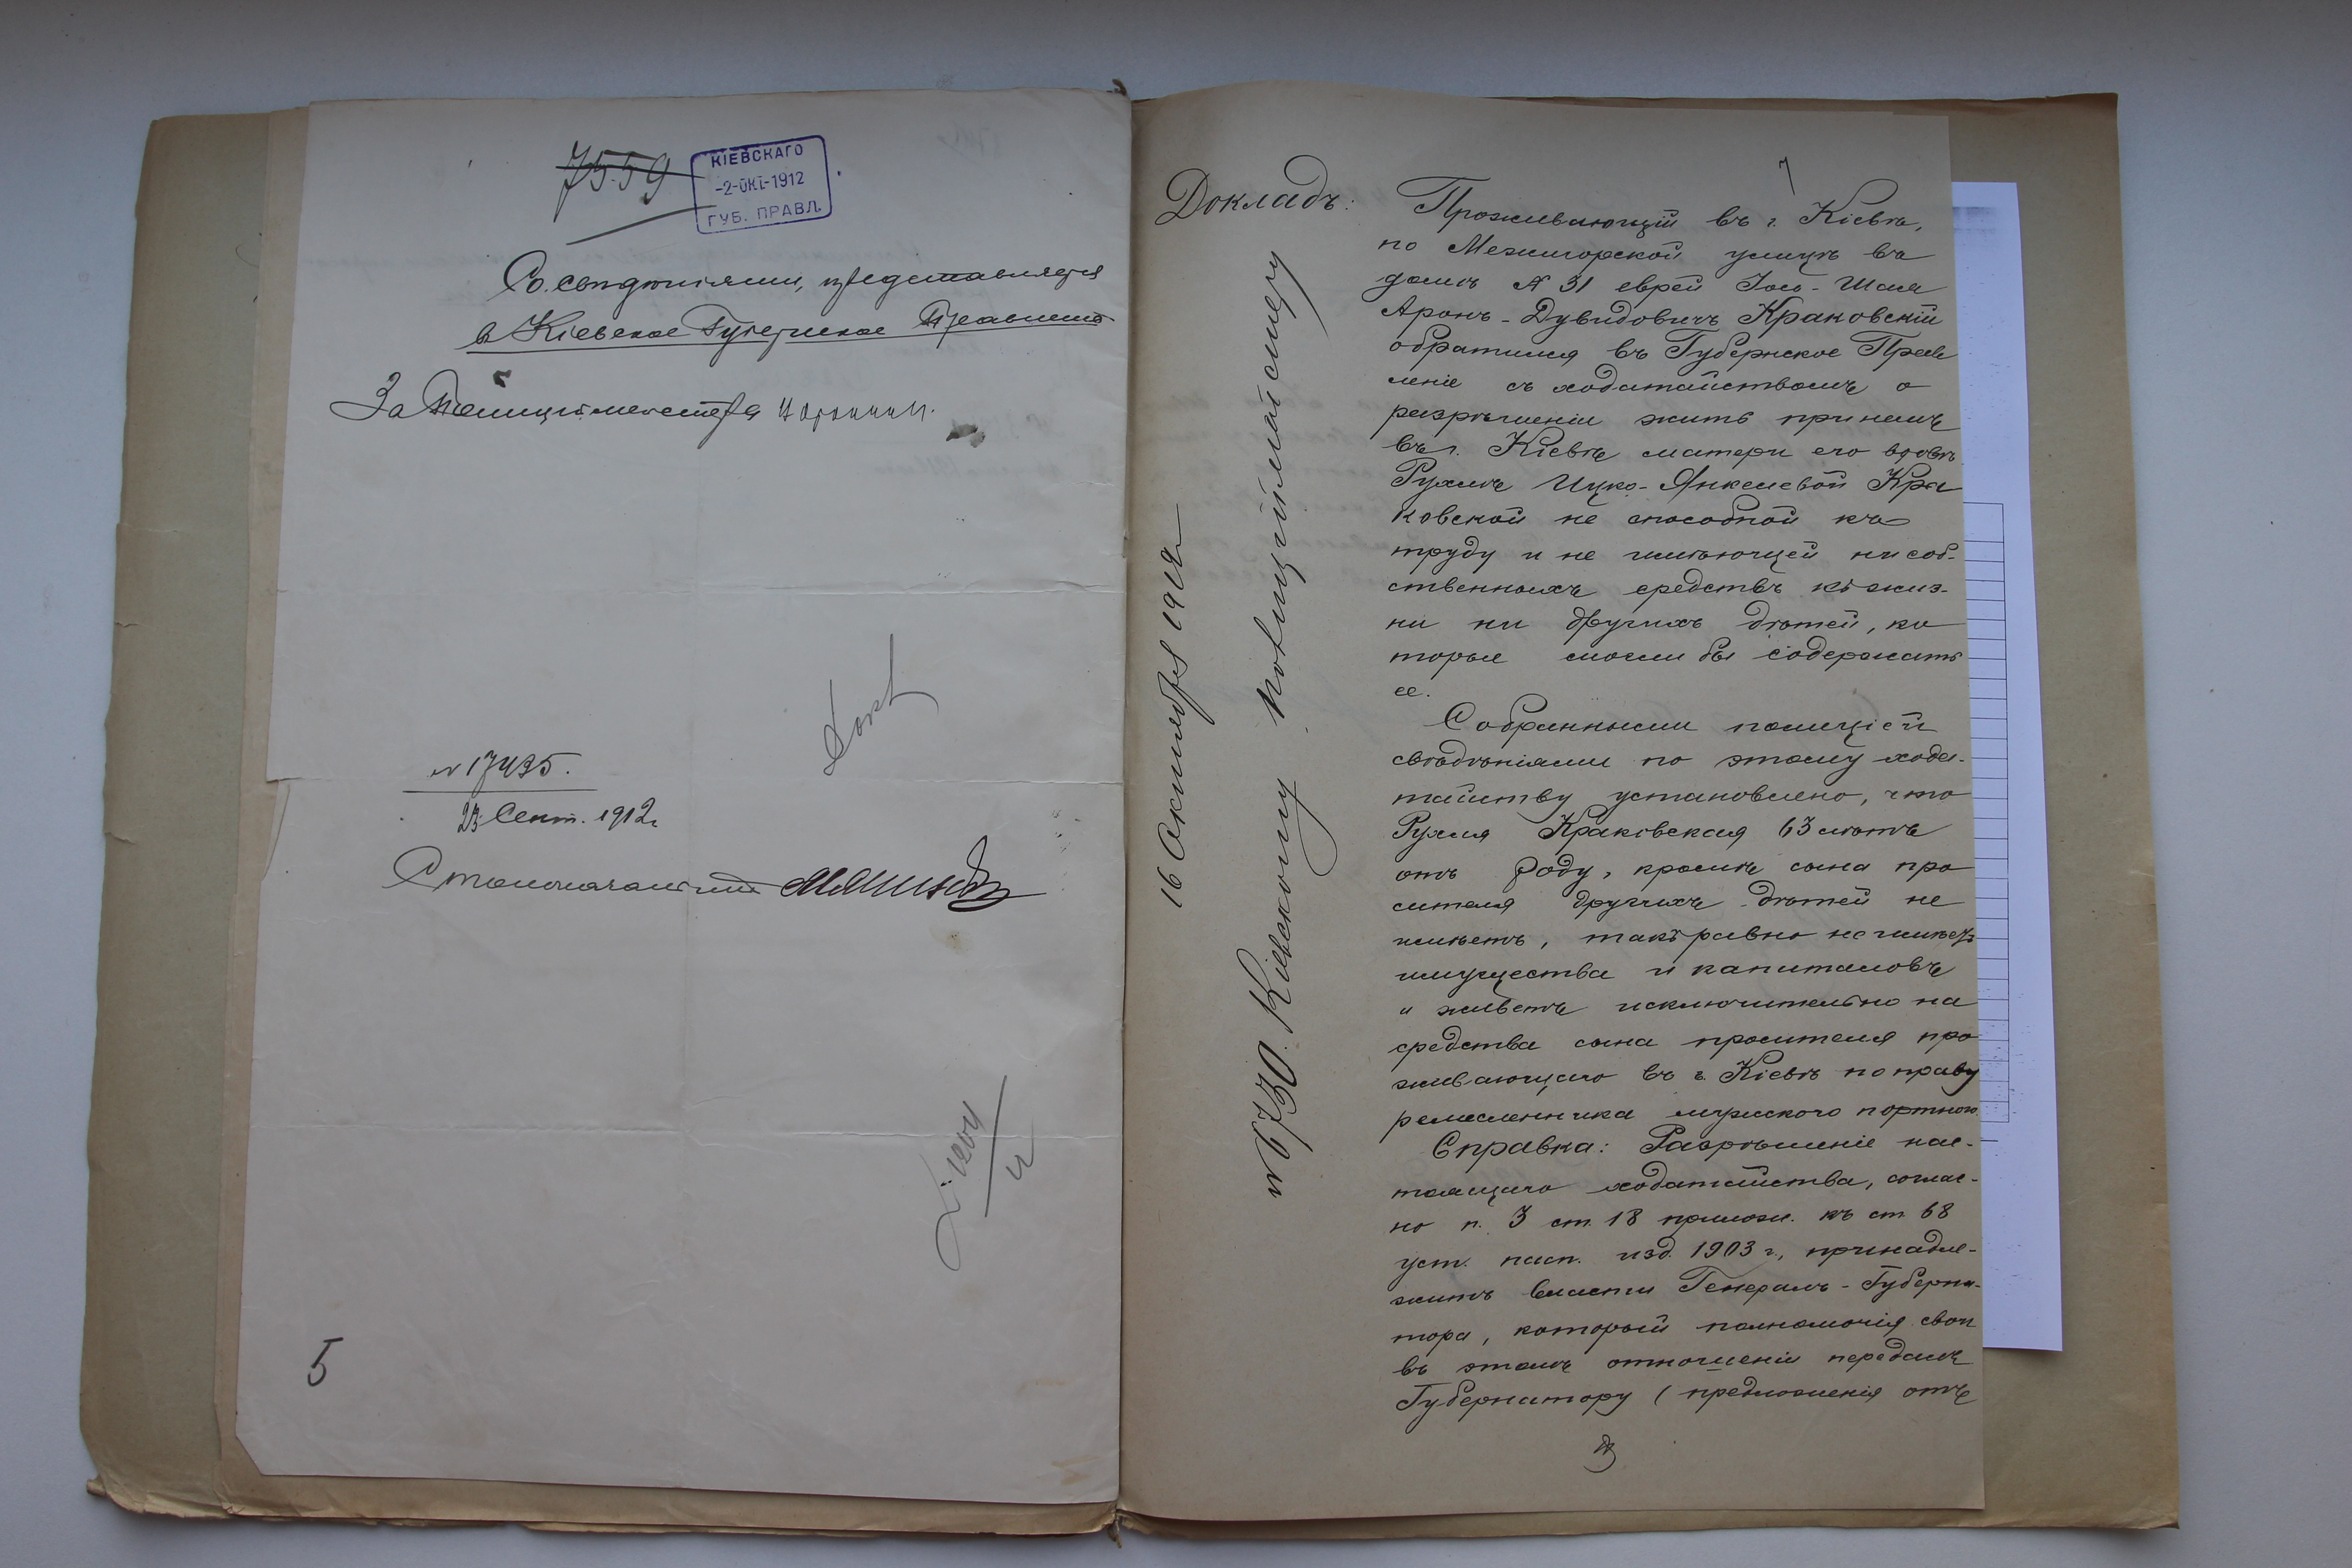 7559
КІЕВСКАГО
-2-ОКТ-1912
ГУБ. ПРАВЛ.
Со сведѣніями, представляется
въ Кіевское Губернское Правленіе
За Полиціймейстера
№ 17495.
23 Сент. 1912 г.
Столоначальникъ
5
7
Докладъ:
16 Октября 1912 г.
№ 6730. Кіевскому Полиціймейстеру
Проживающій въ г. Кіевѣ,
по Межигорской улицѣ въ
домѣ № 31 еврей Іось-Шая
Аронъ-Дувидовичъ Краковскій
обратился въ Губернское Прав
леніе съ ходатайствомъ о
разрѣшеніи жить при немъ
въ г. Кіевѣ матери его вдовѣ
Рухлѣ Ицко-Янкелевой Кра
ковской не способной къ
труду и не имѣющей ни соб-
ственныхъ средствъ къ жиз-
ни ни другихъ дѣтей, ко
торые могли бы содержать
ее.
Собранными полиціей
свѣдѣніями по этому хода-
тайству установлено, что
Рухля Краковская 63 лѣтъ
отъ роду, кромѣ сына про
сителя другихъ дѣтей не
имѣетъ, такъ равно не имѣетъ
имущества и капиталовъ
и живетъ исключительно на
средства сына просителя про
живающаго въ г. Кіевѣ по праву
ремесленника мужского портного.
Справка: Разрѣшеніе нас-
тоящаго ходатайства, соглас-
но п. 3 ст. 18 прилож. къ ст. 68
уст. пасп. изд. 1903 г., принадле-
житъ власти Генералъ-Губерна-
тора, который полномочія свои
въ этомъ отношеніи передалъ
Губернатору (предложенія отъ